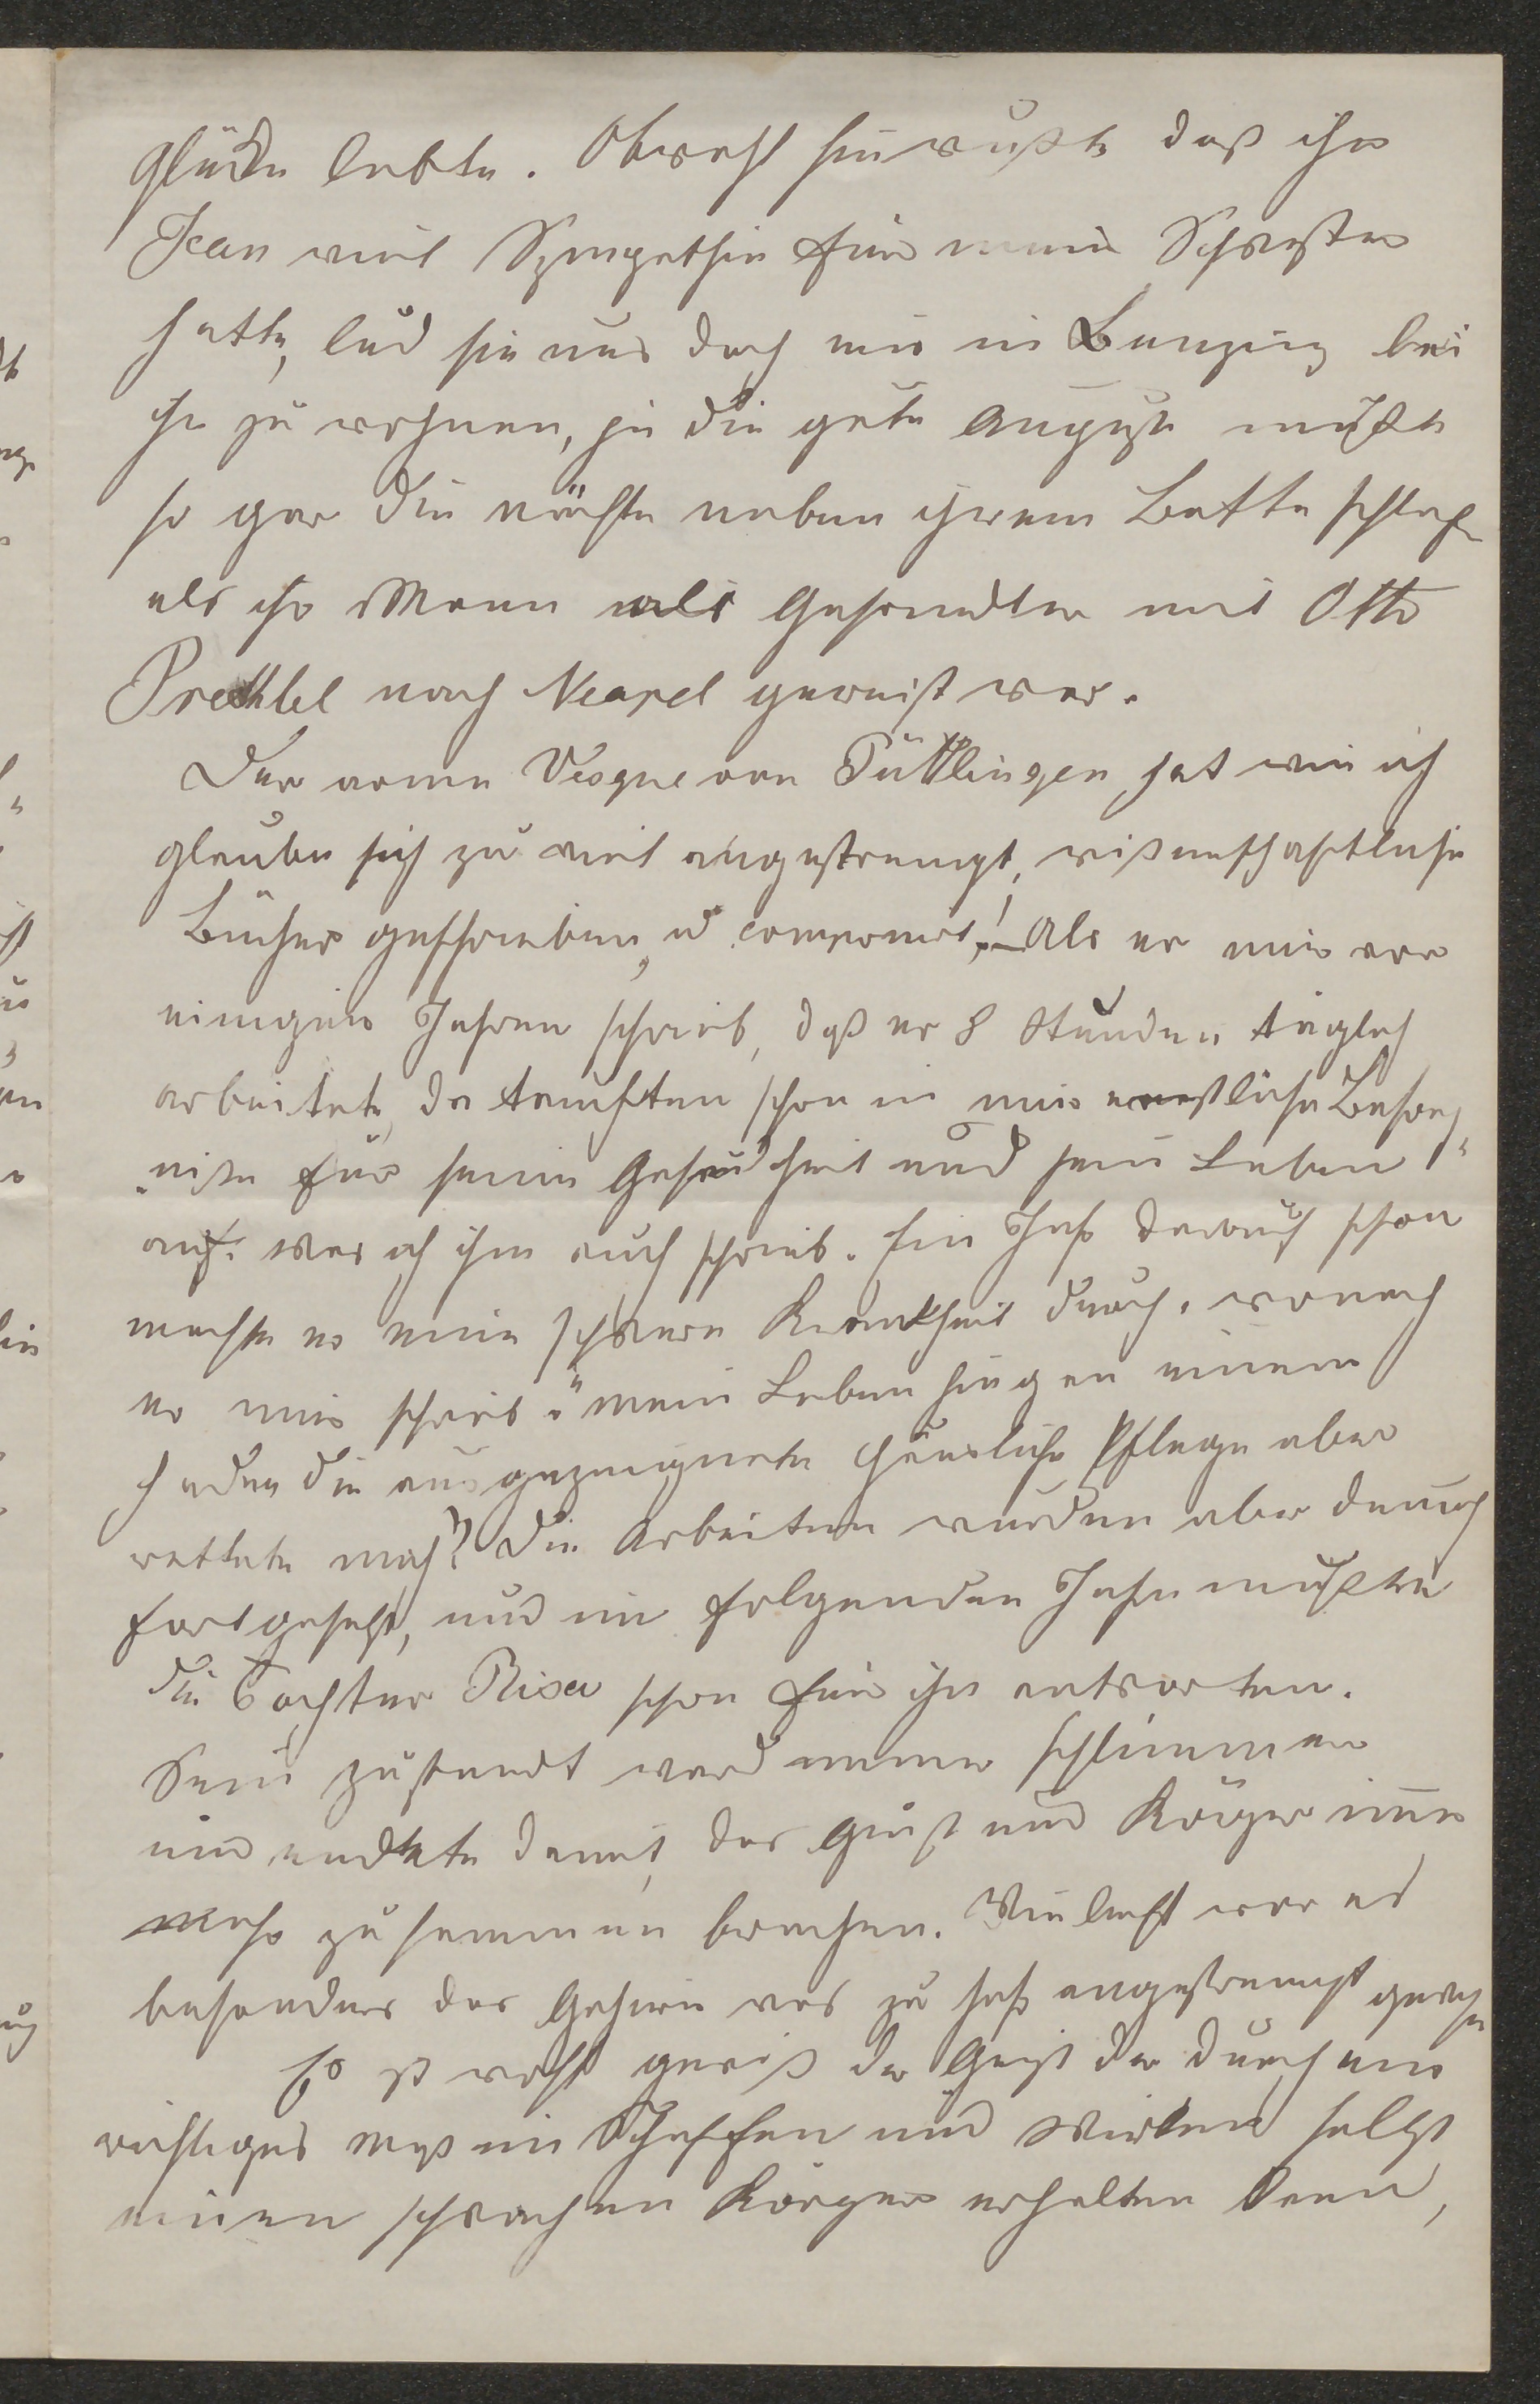 Glücke lebte. Obwohl sie wußte daß ihr
Jean viel Sympathie für meine Schwester
hatte, lud sie uns doch ein in Penzing bei
ihr zu wohnen, ja die gute Auguste mußte
so gar die Nächte neben ihrem Bette schlafen
als ihr Mann als Gesandter mit Otto
Prechtel nach Neapel gereist war.
Der arme Vesque von Püttlingen hat wie ich
glaube sich zu viel angestrengt, wißenschaftliche
Bücher geschrieben, u componirt! – Als er mir vor
einigen Jahren schrieb, daß er 8 Stunden täglich
arbeitete, da tauchten schon in mir ernstliche Besorg-
niße für seine Gesundheit und sein Leben
auf. was ich ihm auch schrieb. Ein Jahr darauf schon
machte er eine schwere Krankheit durch, wonach
er mir schrieb „mein Leben hing an einem
Faden die ausgezeichnete häusliche Pflege aber
rettete mich“. Die Arbeiten wurden aber dennoch
fortgesetzt, und im folgenden Jahre mußte
die Tochter Risa schon für ihn antworten.
Sein Zustandt ward immer schlimmer
und endete damit, das Geist und Körper immer
mehr zusammen brachen. Vieleicht war es
besonders das Gehirn was zu sehr angestrengt gewesen
Es ist wohl gewiß der Geist der durch ein
richtiges Maß im Schaffen und Wirken selbst
einen schwachen Körper erhalten kann,